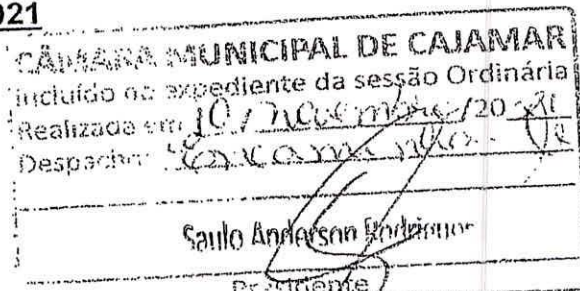 021
CÂMARA MUNICIPAL DE CAJAMAR
incluído no expediente da sessão Ordinária
Realizada em 10 / novembro /20 21
Despacho: Encaminha-se
Saulo Anderson Rodrigues
Presidente